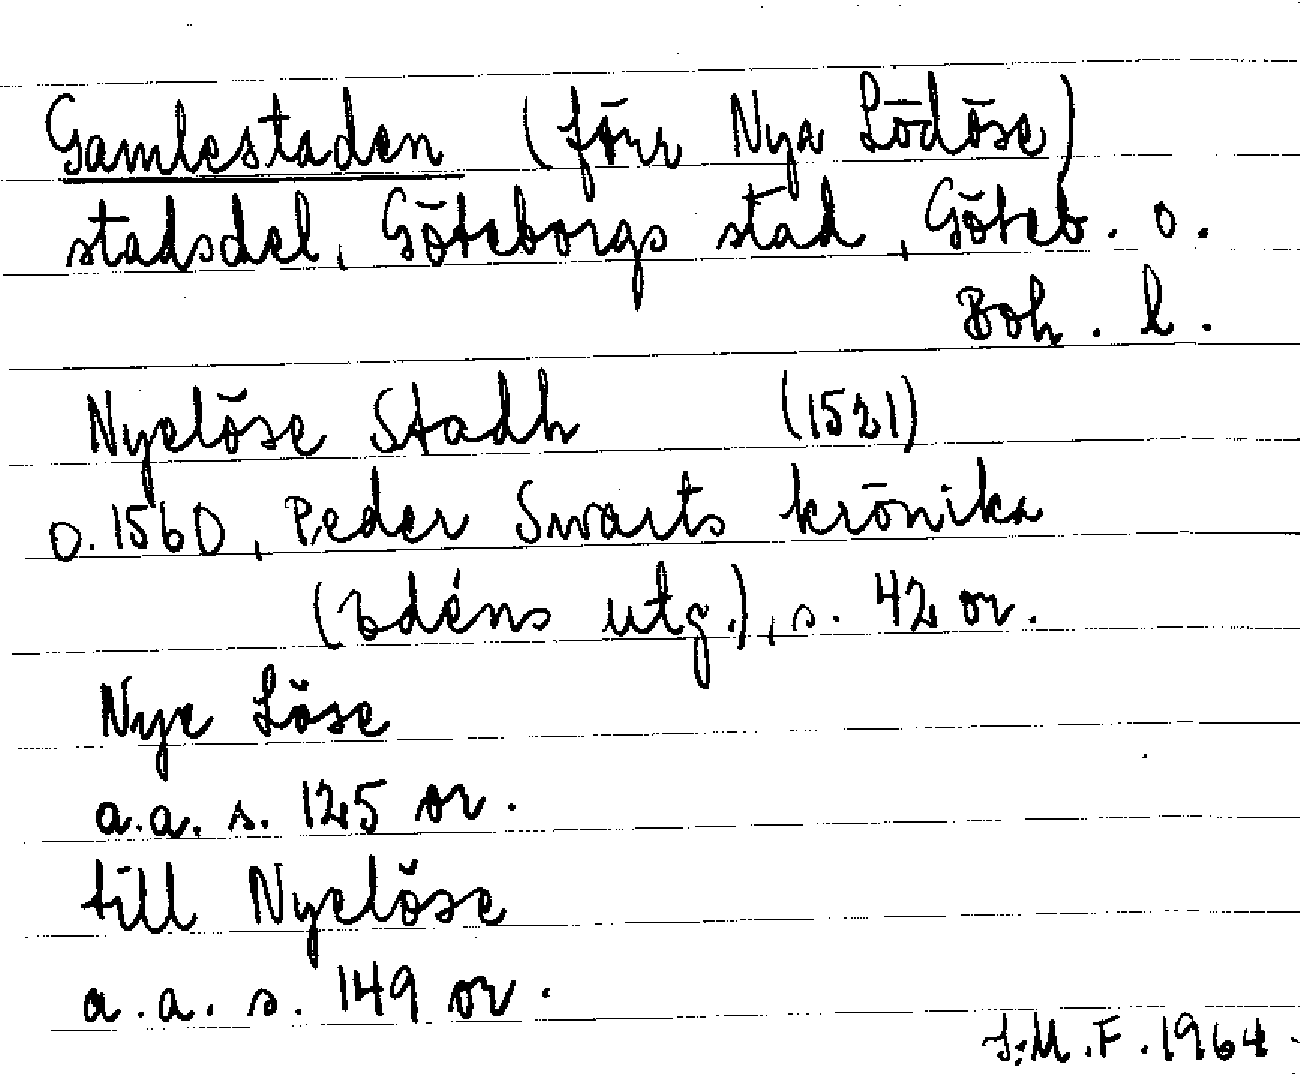 Gamlestaden (förr Nya Lödöse)
stadsdel, Göteborgs stad, Göteb. o.
Boh. l.
Nyelöse Stadh (1521)
o. 1560, Peder Swarts krönika
(Edéns utg.), s. 42 or.
Nye Löse
a.a. s. 125 or.
till Nyelöse
a.a. s. 149 or.
S:M.F. 1964.